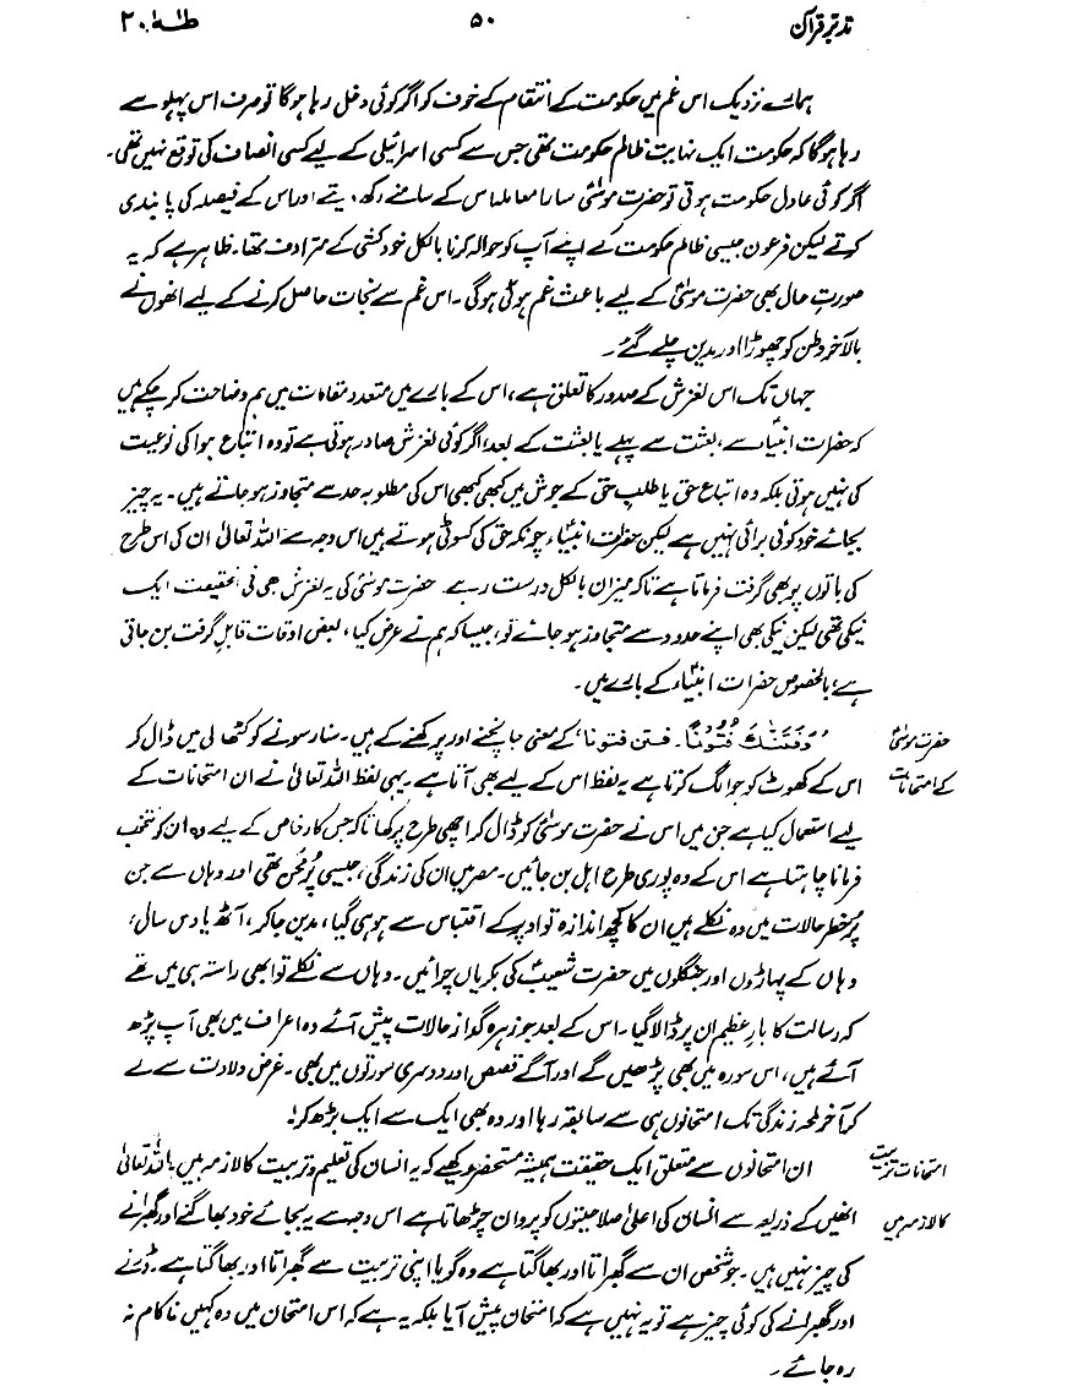 تدبر قرآن ۵۰ طٰہٰ ۲۰
ہمارے نزدیک اس غم میں حکومت کے انتقام کے خوف کو اگر کوئی دخل رہا ہوگا تو صرف اس پہلو سے
رہا ہوگا کہ حکومت ایک نہایت ظالم حکومت تھی جس سے کسی اسرائیلی کے لیے کسی انصاف کی توقع نہیں تھی۔
اگر کوئی عادل حکومت ہوتی تو حضرت موسٰیؑ سارا معاملہ اس کے سامنے رکھ دیتے اور اس کے فیصلہ کی پابندی
کرتے لیکن فرعون جیسی ظالم حکومت کے اپنے آپ کو حوالہ کرنا بالکل خودکشی کے مترادف تھا۔ ظاہر ہے کہ یہ
صورتِ حال بھی حضرت موسٰیؑ کے لیے باعث غم ہوئی ہوگی۔ اس غم سے نجات حاصل کرنے کے لیے انھوں نے
بالآخر وطن کو چھوڑا اور مدین چلے گئے۔
جہاں تک اس لغزش کے صدور کا تعلق ہے، اس کے بارے میں متعدد مقامات میں ہم وضاحت کر چکے ہیں
کہ حضرات انبیاءؑ سے، بعثت سے پہلے یا بعثت کے بعد، اگر کوئی لغزش صادر ہوتی ہے تو وہ اتباع ہوا کی نوعیت
کی نہیں ہوتی بلکہ وہ اتباع حق یا طلب حق کے جوش میں کبھی کبھی اس کی مطلوبہ حد سے متجاوز ہو جاتے ہیں۔ یہ چیز
بجائے خود کوئی برائی نہیں ہے لیکن حضرات انبیاءؑ چونکہ حق کی کسوٹی ہوتے ہیں اس وجہ سے اللہ تعالیٰ ان کی اس طرح
کی باتوں پر بھی گرفت فرماتا ہے تاکہ میزان بالکل درست رہے۔ حضرت موسٰیؑ کی یہ لغزش بھی فی الحقیقت ایک
نیکی تھی لیکن نیکی بھی اپنے حدود سے متجاوز ہو جائے تو، جیسا کہ ہم نے عرض کیا، بعض اوقات قابلِ گرفت بن جاتی
ہے، بالخصوص حضرات انبیاءؑ کے بارے میں۔
حضرت موسٰیؑ
کے امتحانات
'وَفَتَنّٰكَ فُتُوْنًا'۔ فتن فتونا، کے معنی جانچنے اور پرکھنے کے ہیں۔ سنار سونے کو کٹھالی میں ڈال کر
اس کے کھوٹ کو جو الگ کرتا ہے یہ لفظ اس کے لیے بھی آتا ہے۔ یہی لفظ اللہ تعالیٰ نے ان امتحانات کے
لیے استعمال کیا ہے جن میں اس نے حضرت موسٰیؑ کو ڈال کر اچھی طرح پرکھا تاکہ جس کارِ خاص کے لیے وہ ان کو منتخب
فرمانا چاہتا ہے اس کے وہ پوری طرح اہل بن جائیں۔ مصر میں ان کی زندگی، جیسی پُرمحن تھی اور وہاں سے جن
پرخطر حالات میں وہ نکلے ہیں ان کا کچھ اندازہ تو اوپر کے اقتباس سے ہو ہی گیا، مدین جا کر، آٹھ یا دس سال،
وہاں کے پہاڑوں اور جنگلوں میں حضرت شعیبؑ کی بکریاں چرائیں۔ وہاں سے نکلے تو ابھی راستہ ہی میں تھے
کہ رسالت کا بارِ عظیم ان پر ڈالا گیا۔ اس کے بعد جو زہرہ گداز حالات پیش آئے وہ اعراف میں بھی آپ پڑھ
آئے ہیں، اس سورہ میں بھی پڑھیں گے اور آگے قصص اور دوسری سورتوں میں بھی۔ غرض ولادت سے لے
کر آخر لمحہ زندگی تک امتحانوں ہی سے سابقہ رہا اور وہ بھی ایک سے ایک بڑھ کر!
امتحانات تربیت
کا لازمہ ہیں
ان امتحانوں سے متعلق ایک حقیقت ہمیشہ مستحضر رکھیے کہ یہ انسان کی تعلیم و تربیت کا لازمہ ہیں۔ اللہ تعالیٰ
انھیں کے ذریعہ سے انسان کی اعلیٰ صلاحیتوں کو پروان چڑھاتا ہے اس وجہ سے یہ بجائے خود بھاگنے اور گھبرانے
کی چیز نہیں ہیں۔ جو شخص ان سے گھبراتا اور بھاگتا ہے وہ گویا اپنی تربیت سے گھبراتا اور بھاگتا ہے۔ ڈرنے
اور گھبرانے کی کوئی چیز ہے تو یہ نہیں ہے کہ امتحان پیش آیا بلکہ یہ ہے کہ اس امتحان میں وہ کہیں ناکام نہ
رہ جائے۔